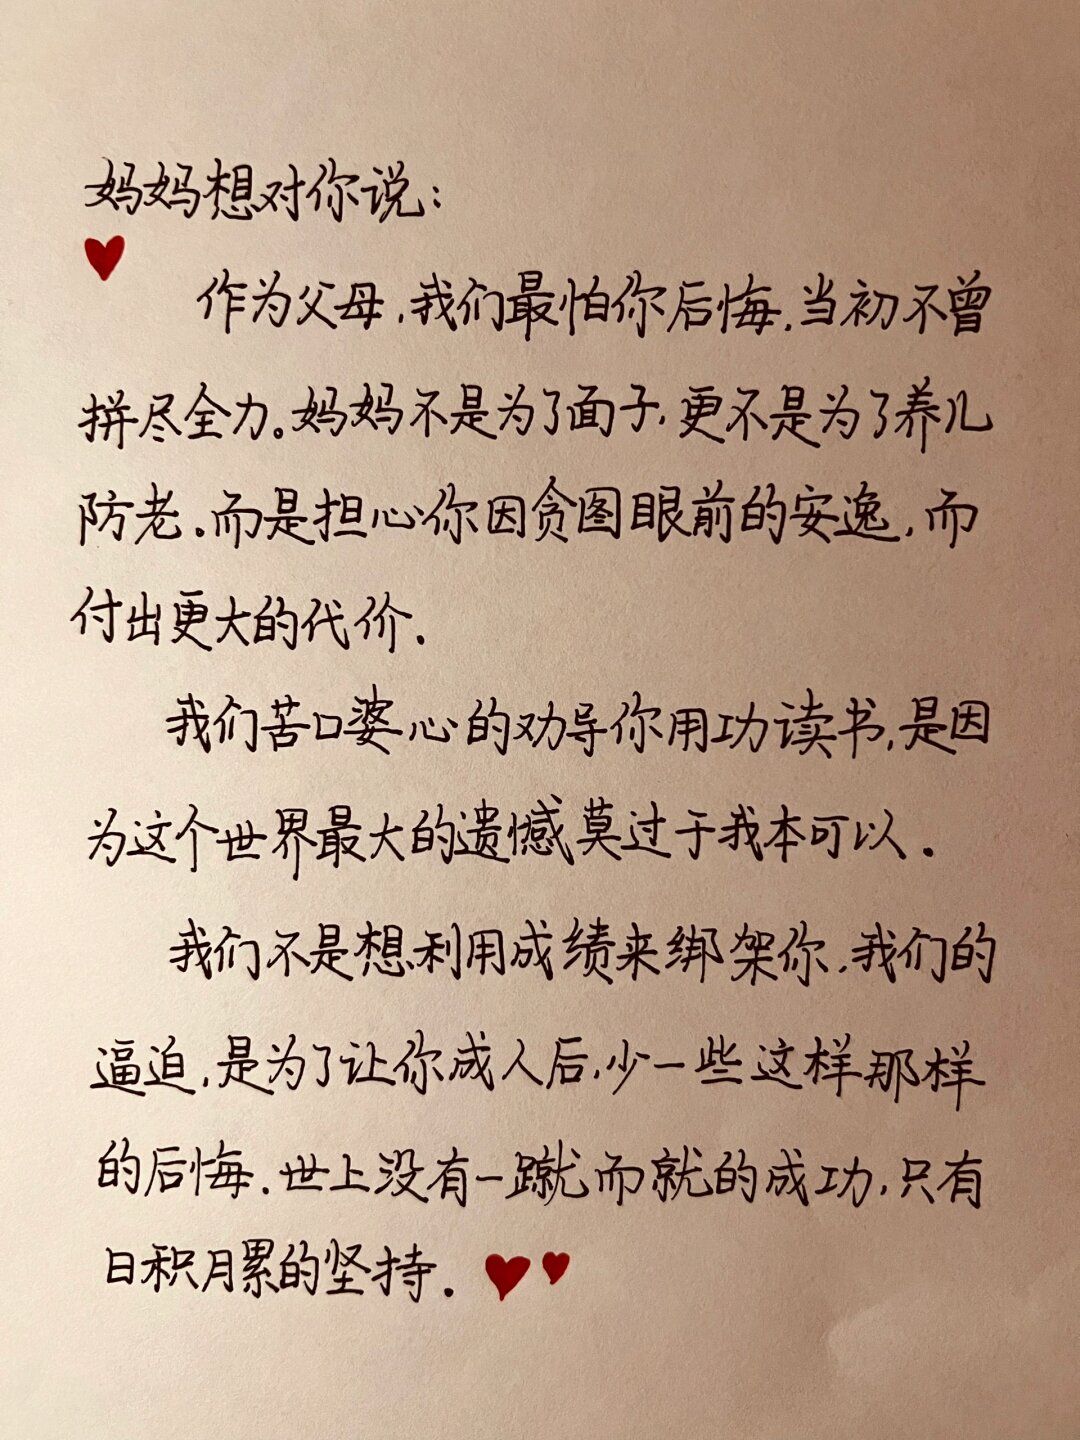 妈妈想对你说：
作为父母，我们最怕你后悔，当初不曾
拼尽全力。妈妈不是为了面子，更不是为了养儿
防老。而是担心你因贪图眼前的安逸，而
付出更大的代价.
我们苦口婆心的劝导你用功读书，是因
为这个世界最大的遗憾莫过于我本可以.
我们不是想利用成绩来绑架你，我们的
逼迫，是为了让你成人后，少一些这样那样
的后悔.世上没有一蹴而就的成功，只有
日积月累的坚持.